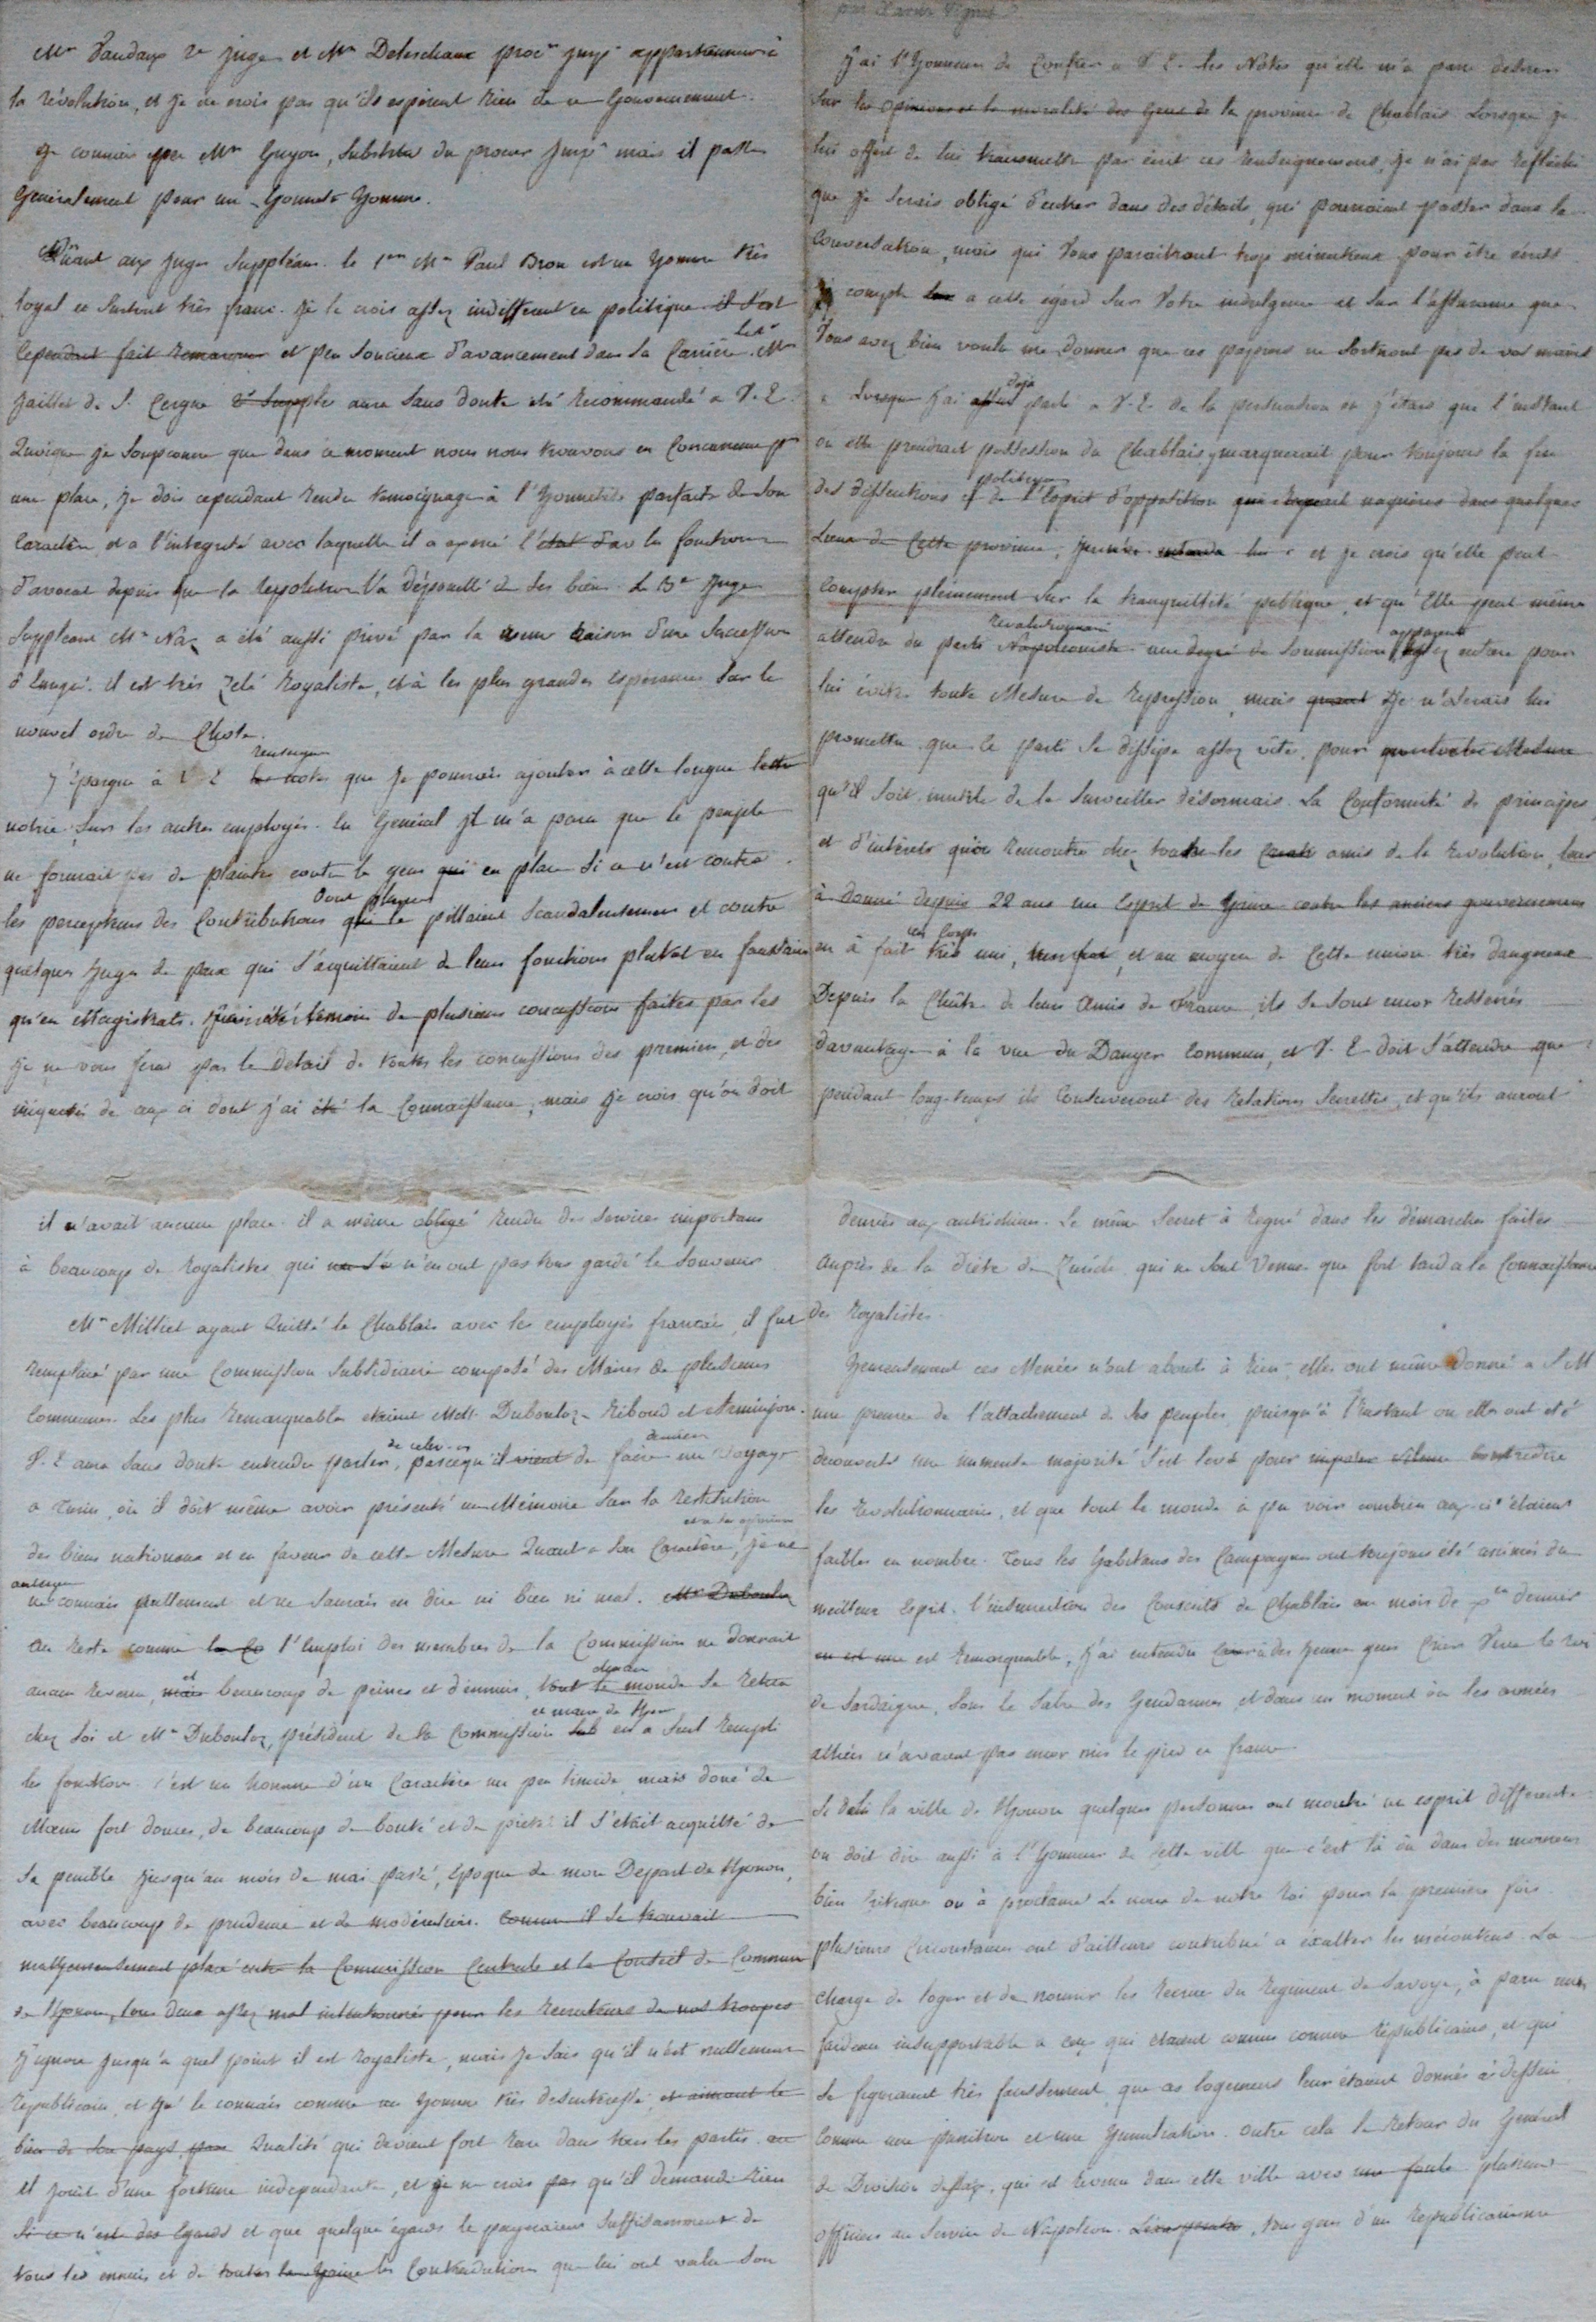 Mr Vaudaux 2e juge et Mr Deleschaux procr impl appartiennent à
la révolution, et je ne crois pas qu'ils espèrent rien de ce Gouvernement.
je connais peu Mr Guyon, Substitut du procur impl mais il passe
Généralement pour un honnête homme.
Quant aux juges Suppléans. le 1er Mr Paul Bron est un homme très
loyal et Surtout très franc. je le crois assez indifferent en politique il s'est
cependant fait remarquer et peu Soucieux d'avancement dans Sa Carrière. Mr
Jaillet de St Cergue 2d Supplt aura Sans doute été recommandé a V. E.
Quoique je Soupçonne que dans ce moment nous nous trouvons en Concurrence pr
une place, je dois cependant rendre temoignage à l'honnêteté parfaite de Son
Caractère, et a l'integrité avec laquelle il a exercé l'état d'av les fonctions
d'avocat depuis que la revolution l'a dépouillé de Ses biens. Le 3e juge
Suppleant Mr Naz a été aussi privé par la même raison d'une Succession
d'Emigré. il est très Zelé royaliste, et à les plus grandes espérances Sur le
nouvel ordre de Chose.
J'Epargne à V E les notes que je pourrais ajouter à cette longue lettre
notice Sur les autres employés. En Général il m'a paru que le peuple
ne formait pas de plaintes contre les gens qui en place Si ce n'est contre
dont plusrs
les percepteurs des Contributions qui le pillaient Scandaleusement et contre
quelques juges de paix qui S'acquittaient de leurs fonctions plutot en
qu'en Magistrats. j'ai été témoin de plusieurs concussions faites par les
je ne vous ferai pas le détail de toutes les concussions des premiers, et des
iniquités de ceux ci dont j'ai été la Connaissance, mais je crois qu'on doit
il n'avait aucune place. il a même obligé rendu des Services importans
à beaucoup de royalistes qui n'en ont pas tous gardé le Souvenir
Mr Milliet ayant Quitté le Chablais avec les employés français, il fut
remplacé par une Commission Subsidiaire composé des Maires de plusieurs
Communes. Les plus remarquables étaient Mrs Dubouloz Riboud et Arminjon.
de celui-ci dernier
V. E aura Sans doute entendu parler, parcequ'il vient de faire un Voyage
a Turin, où il doit même avoir présenté un Mémoire Sur la restitution
et a ses opinions
des biens nationaux et en faveur de cette Mesure Quant a Son Caractère, je ne
le connais nullement et ne Saurais en dire ni bien ni mal. Mr Dubouloz
Au reste comme la Co l'Emploi des membres de la Commission ne donnait
aucun revenu, mais et beaucoup de peines et d'ennuis, tout le monde Se retira
et maire de Thonon
chez Soi et Mr Dubouloz, président de la Commission Sub en a Seul rempli
les fonctions. c'est un homme d'un Caractère un peu timide, mais doué de
Mœurs fort douces, de beaucoup de bonté et de piété. il S'était acquitté de
Sa penible jusqu'au mois de mai passé, époque de mon Depart de Thonon,
avec beaucoup de prudence et de modération. Comme il Se trouvait
malheureusement placé entre la Commission Centrale et le Conseil de Commune
de Thonon, tous deux assez mal intentionnés pour les recruteurs de nos troupes
J'ignore jusqu'a quel point il est royaliste, mais je Sais qu'il n'est nullement
républicain, et je le connais comme un homme très desintéressé, et aimant le
bien de Son pays, Qualité qui devient fort rare dans tous les partis.
il jouit d'une fortune independante, et je ne crois pas qu'il demande rien
Si ce n'est des égards et que quelques égards le payeraient Suffisamment de
tous les ennuis et de toutes la haine les Contradictions que lui ont valu Son
par Xavier Vignet
J'ai l'honneur de Confier a V. E. les Notes qu'elle m'a paru desirer
Sur les opinions et la moralité des Gens de la province de Chablais Lorsque je
lui offert de lui transmettre par écrit ces renseignemens, je n'ai pas réfléchi
que je Serais obligé d'entrer dans des détails, qui pourraient passer dans la
Conversation, mais qui Vous paraitront trop minutieux pour être écrits
je compte a cette égard Sur Votre indulgence et Sur l'assurance que
Vous avez bien voulu me donner que ces papiers ne Sortiront pas de vos mains
déjà
Lorsque j'ai parlé a V. E. de la persuasion où j'étais que l'instant
où elle prendrait possession du Chablais, marquerait pour toujours la fin
politiques
des dissentions et de l'Esprit d'opposition qui régnait naguères dans quelques
Lieux de Cette province, et je crois qu'elle peut
Compter pleinement Sur la tranquillité publique, et qu'Elle peut même
revolutionnaire apparente
attendre du parti Napoleoniste une degré de Soumission assez entière pour
lui éviter toute Mesure de répression, mais quant je n'oserais lui
promettre que le parti Se dissipe assez vite, pour que toute Mesure
qu'il Soit inutile de le Surveiller désormais. La Conformité de principes
et d'intérêts qu'on rencontre chez tous les amis de la révolution, leur
à donné depuis 22 ans un Esprit de haine contre les anciens gouvernemens
un Corps
en à fait très uni, et au moyen de Cette union très dangereux
Depuis la Chûte de leurs Amis de France, ils Se Sont encor resserrés
davantage à la vue du Danger Commun, et V. E doit S'attendre que
pendant long-temps ils Conserveront des relations Secrettes, et qu'ils auront
Le même Secret à regné dans les démarches faites
auprès de la diète de Zurich qui ne Sont Venues que fort tard a la Connaissance
des royalistes.
heureusement ces Menées n'ont abouti à rien, elles ont même Donné a S M
une preuve de l'attachement de Ses peuples, puisqu'à l'instant ou elles ont été
découvertes une immense majorité S'est levée pour imposer Silence contredire
les revolutionnaires, et que tout le monde à pu voir combien ceux-ci étaient
faibles en nombre. Tous les habitans des Campagnes ont toujours été animés du
meilleur Esprit. l'insurrection des Conscrits de Chablais au mois de Xbre dernier
en est une est remarquable, j'ai entendu des jeunes gens Crier Vive le roi
de Sardaigne, Sous le Sabre des Gendarmes, et dans un moment où les armées
alliées n'avaient pas encor mis le pied en france
Si dans la ville de Thonon quelques personnes ont montré un esprit different
on doit dire aussi à l'honneur de cette ville que c'est là où dans des momens
bien critiques on à proclamé Le nom de notre Roi pour la première fois
plusieurs Circonstances ont d'ailleurs contribué a exalter les mécontens. La
charge de loger et de nourrir les recrues du Regiment de Savoye, à paru un
fardeau insupportable a ceux qui étaient connus comme républicains, et qui
Se figuraient très faussement, que ces logemens leur étaient donnés à dessein
Comme une punition et une humiliation. outre cela le retour du Général
de Division dessaix, qui est revenu dans cette ville avec une foule plusieurs
officiers au Service de Napoleon. tous gens d'un républicanisme